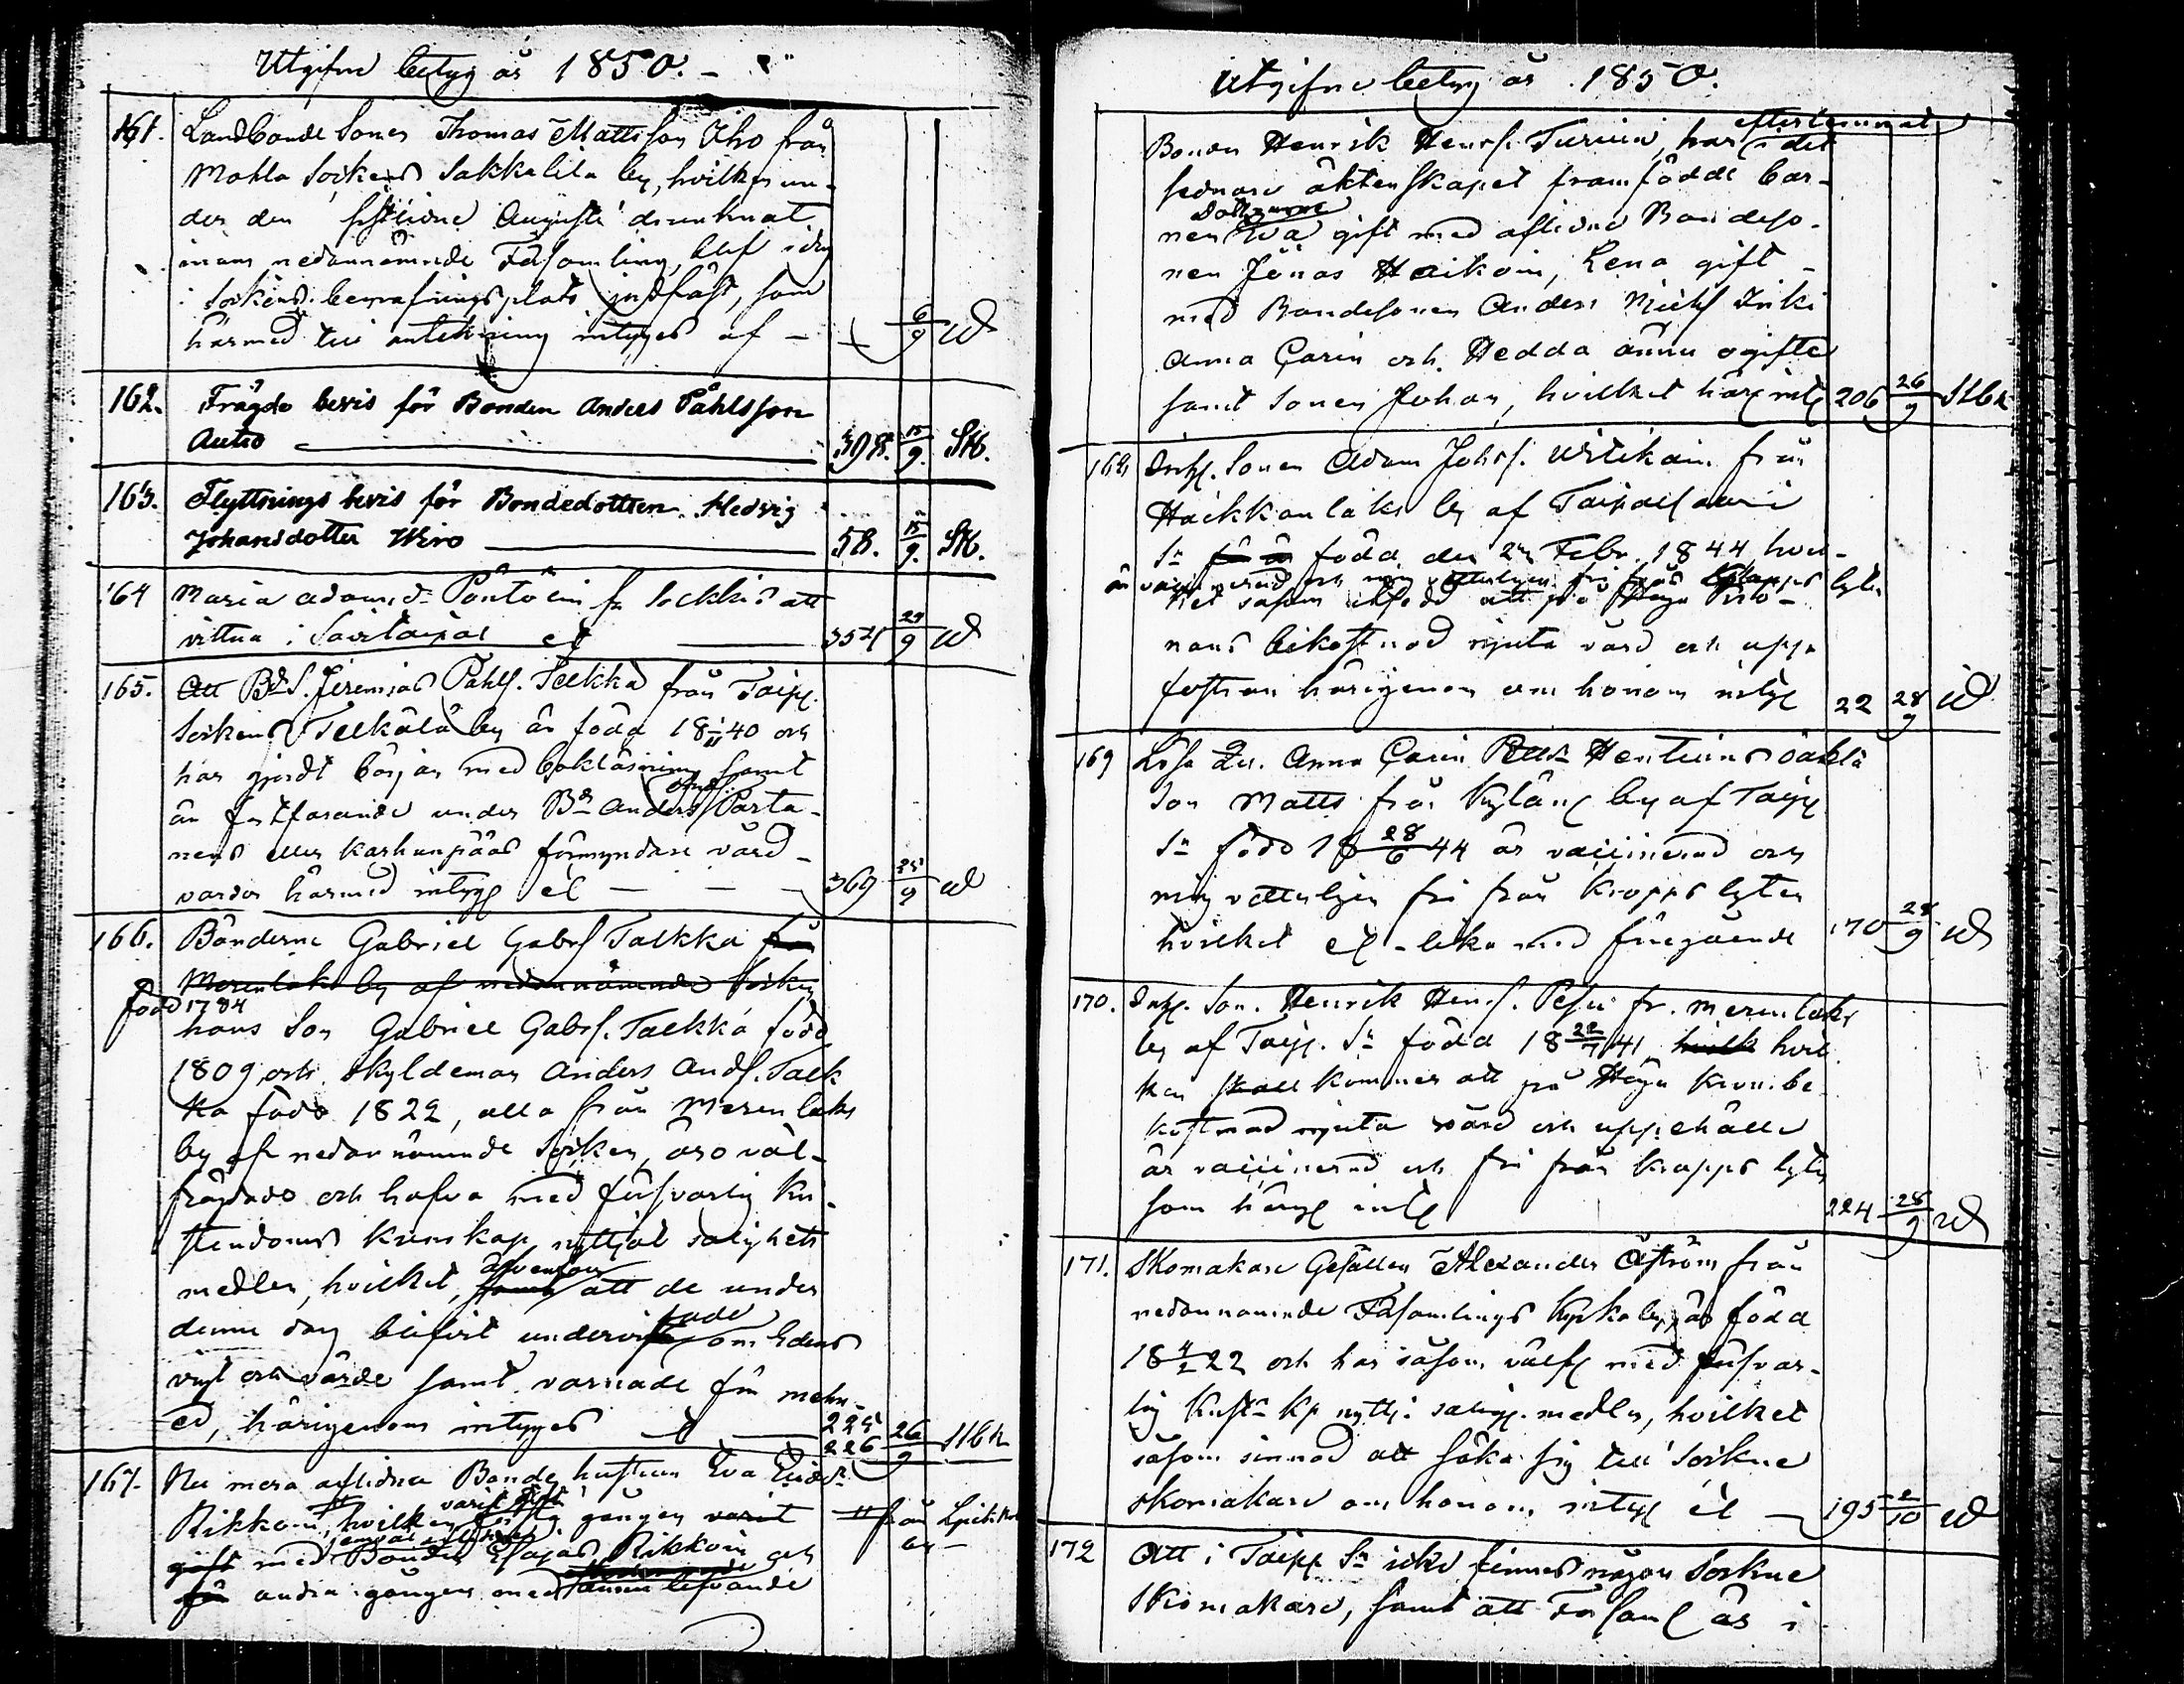 Utgifne betyg år 1850. –
161. Landbonde Sonen Thomas Mattsson Iho från
Mohla Sockens Sakkalila by, hvilken un-
der den sistlidne Augusti drunknat
inom nedannämnde Församling, blef i dag
i Sockens begrafningsplats jordfäst, som
härmed till anteckning intygas af – 6/9
162. Frägde bevis för Bonden Anders Påhlsson
Autio 398. 15/9. Sth.
163. Flyttnings bevis för Bondedottren Hedvig
Johansdotter Wiro 58. 15/9. Sth.
164 Maria Adamsd:r Pöntöin fr att
vittna i Savitaipal 24/9
165. Att Bd S. Jeremias Påhls. Telkkä från Taip.
Sockens Telkälä by är född 18 1/11 40 och
har gjordt början med bokläsning samt
är fortfarande under Bd Anders Parta-
nens eller Karhunpääs förmyndare vård
varder härmed intyg 369 25/9
166. Bönderne Gabriel Gabrs Talkka från
Merenlaks by af nedannämnde Socken
född 1784
hans Son Gabriel Gabrs. Talkka född
1809, och Skyldeman Anders Ands. Talk
ka född 1822, alla från Merenlaks
by af nedannämnde Socken, äro väl-
frägdade och hafva med försvarlig Kri-
stendoms kunskap nyttjat salighets
medlen, hvilket, samt äfvensom att de under
denne dag blifvit undervisade om Edens
vigt och värde samt varnade för mehn-
ed, härigenom intygas 225 226 26/9
167. Nu mera aflidna Bonde hustrun Eva
Rikkoin, hvilken första gången varit från
gift med Bonden Esajas Rikkoin och by –
för andra gången med lefvande
Utgifne betyg år 1850.
Bonden Henrik Henrs. Turuin, har efterlemnat i det
sednare äktenskapet framfödde bar-
nen Döttrarne Eva gift med aflidne Bondeso-
nen Jonas Haikoin, Lena gift
med Bondesonen Anders Inki
Anna Carin och Hedda ännu ogifte
samt Sonen Johan, hvilket härg. intg 206 26/9
168 Inhs. Sonen Adam Johs. från
Haikkanlaks by af Taipalsaari
Sn född den Febr. 1844, hvil-
är vaccinerad och fri från kropps lyten
ket såsom att på Höga Kro-
nans bekostnad njuta vård och upp-
fostran härigenom om honom intyg 22 28/9
169 Lösa Qv. Anna Carin Petts:r oäkta
Son Matts från by af Taip
Sn född 18 28/6 44 är vaccinerad och
mig vetterligen fri från kropps lyten
hvilket lika med föregående 170 28/9
170. Inhs. Son. Henrik Henrs. fr. Merenlaks
by af Taip. Sn född 18 22/7 41, hvilk hvil
ken skall kommer att på Höga Kron. be-
kostnad njuta vård och uppehälle
är vaccinerad och fri från kropps lyten
som härg intg 224 28/9
171. Skomakare Gesällen Alexander Åström från
nedannämnde Församlings Kyrkoby, är född
18 4/2 22 och har såsom välfr. med försvar-
lig Krist:s Kp nyttj. salig. medlen, hvilket
såsom sinnad att söka sig till Sockne
skomakare om honom intyg 195 2/10
172 Att i Taip Sn icke finnes någon Sockne
Skomakare, samt att Församl är i